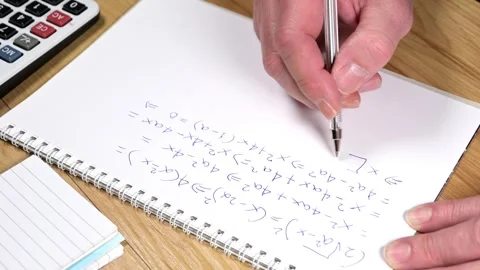 (2√a²-x)² = (x-2a)² ⇒ 4(a²-x) =
= x² - 4ax + 4a² ⇒ 4a² - 4x =
= x² - 4ax + 4a² ⇒ x² + 4x - 4ax =
= 4a² - 4a² ⇒ x² + 4x(1-a) = 0 ⇒
⇒ x